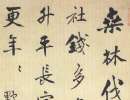 桑林伐
社錢多
升平長
更年